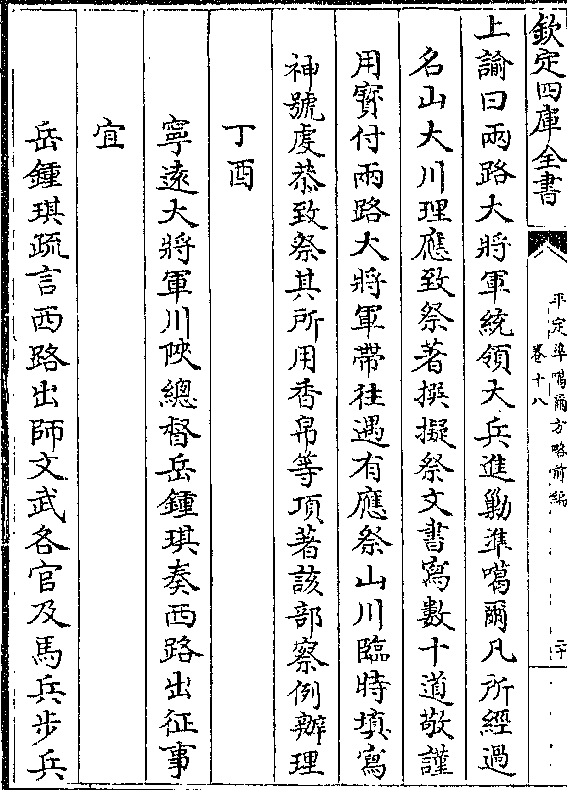 欽定四庫全書
平定準噶爾方略前編
卷十八
二十
上諭曰兩路大將軍統領大兵進勦準噶爾凡所經過
名山大川理應致祭著撰擬祭文書寫數十道敬謹
用寳付兩路大將軍帶往遇有應祭山川臨時填寫
神號䖍恭致祭其所用香帛等項著該部察例辦理
丁酉
寧遠大將軍川陜總督岳鍾琪奏西路出征事
宜
岳鍾琪疏言西路出師文武各官及馬兵步兵